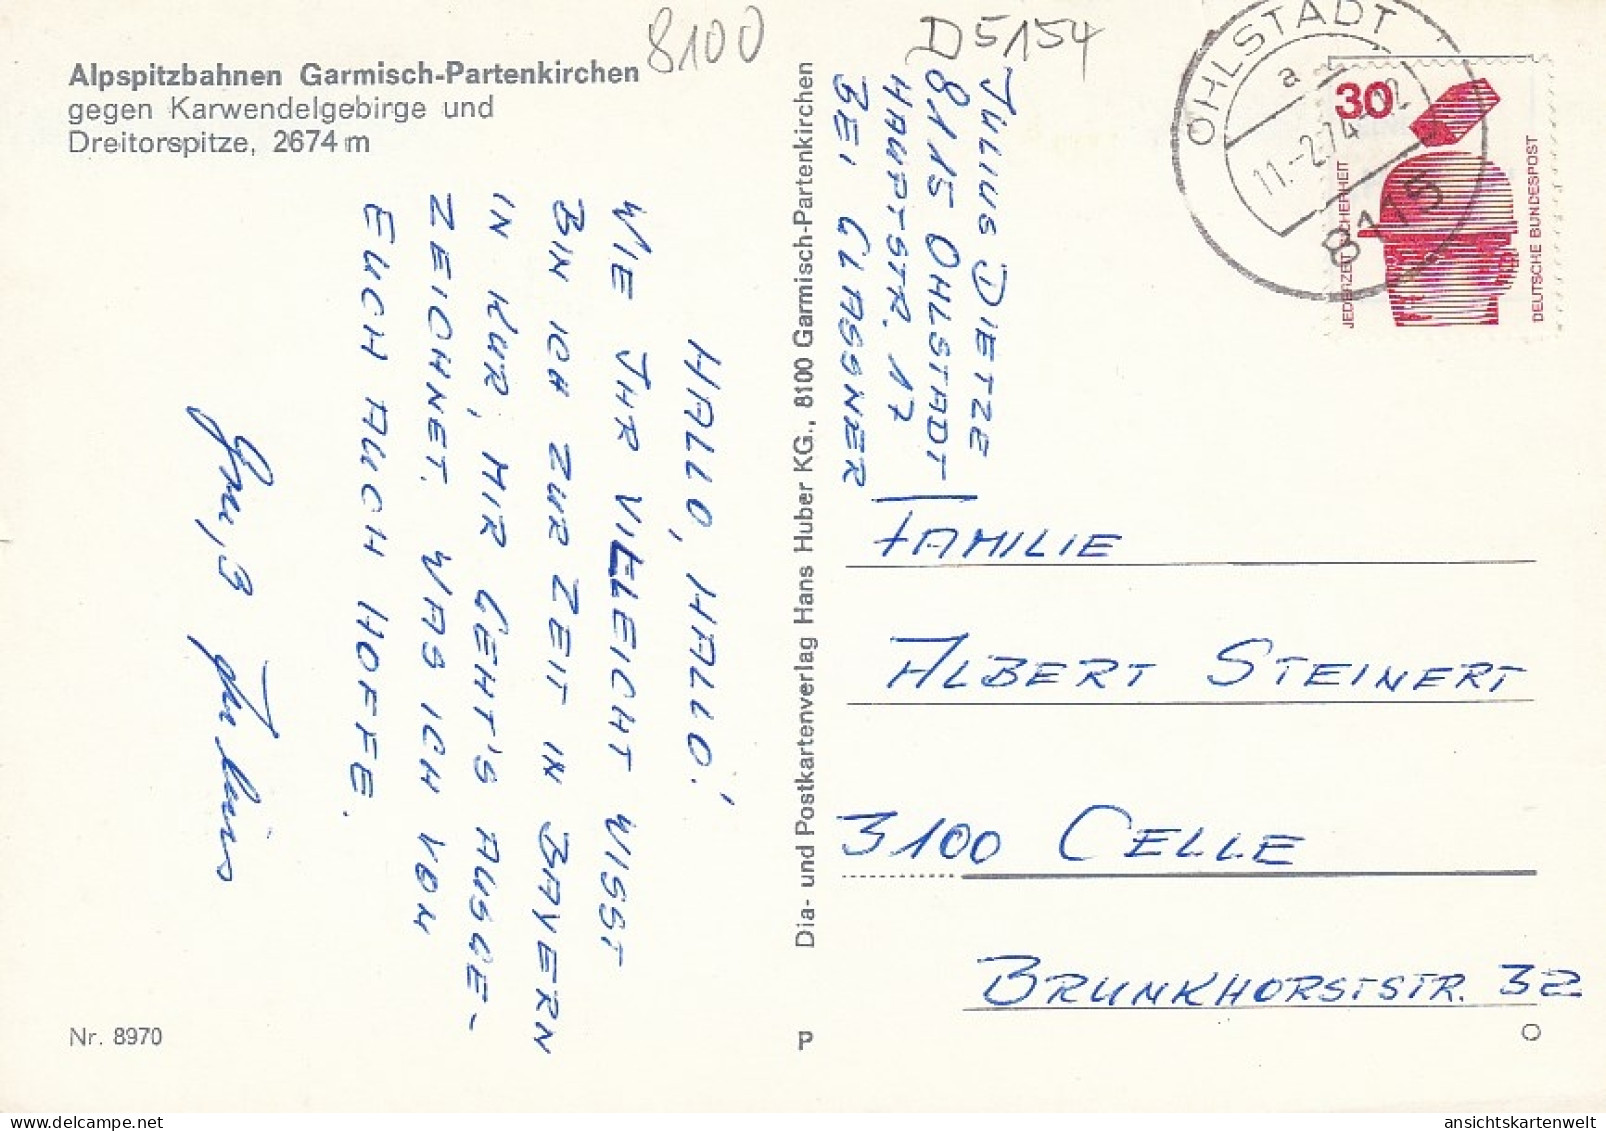 Alpspitzbahnen Garmisch-Partenkirchen
gegen Karwendelgebirge und
Dreitorspitze, 2674 m
8100
D 5154
HALLO, HALLO!
WIE IHR VIELEICHT WISST
BIN ICH ZUR ZEIT IN BAYERN
IN KUR, MIR GEHT'S AUSGE-
ZEICHNET. WAS ICH VON
EUCH AUCH HOFFE.
Gruß Julius
Nr. 8970
Dia- und Postkartenverlag Hans Huber KG., 8100 Garmisch-Partenkirchen
P
JULIUS DIETZE
8115 OHLSTADT
HAUPTSTR. 17
BEI GLASSNER
OHLSTADT
a
11.-2.74-12
8115
30
JEDERZEIT SICHERHEIT
DEUTSCHE BUNDESPOST
FAMILIE
ALBERT STEINERT
3100 CELLE
BRUNKHORSTSTR. 32
O
www.delcampe.net
ansichtskartenwelt